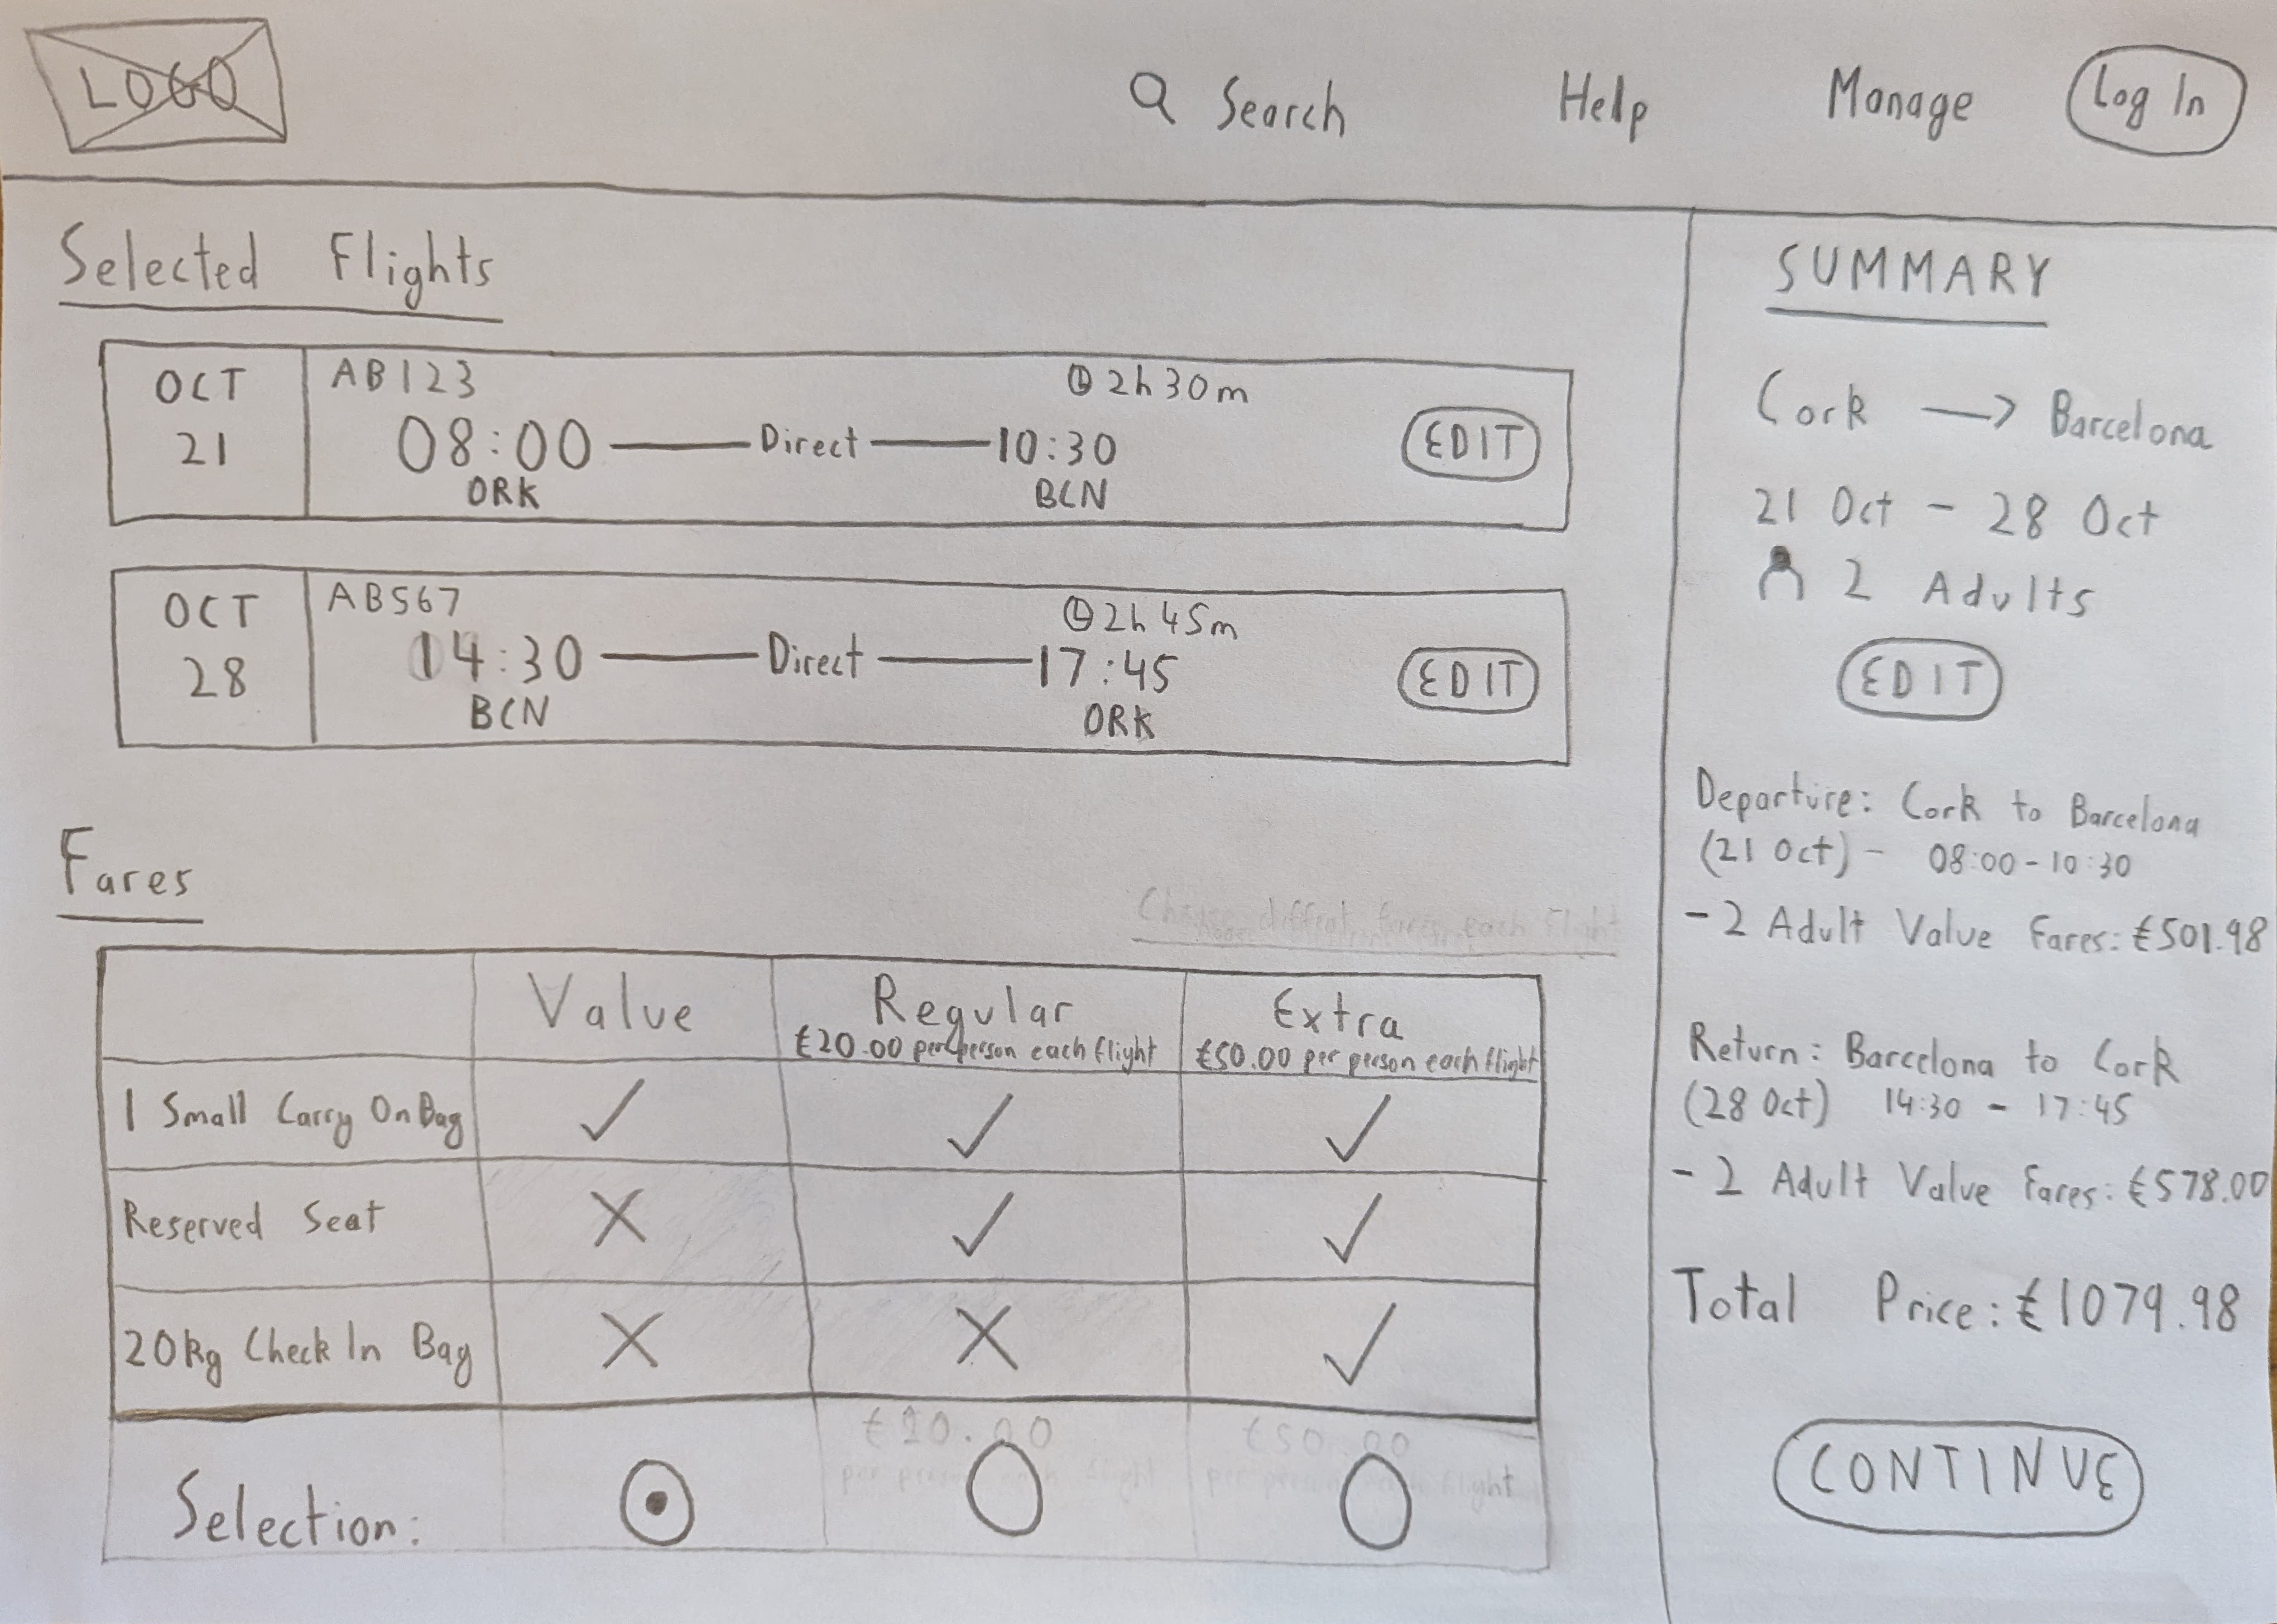 LOGO
Search Help Manage Log In
Selected Flights
OCT 21
AB123
2h 30m
08:00 Direct 10:30
ORK BCN
EDIT
OCT 28
AB567
2h 45m
14:30 Direct 17:45
BCN ORK
EDIT
Fares
each flight
Value Regular Extra
€20.00 per person each flight €50.00 per person each flight
1 Small Carry On Bag
Reserved Seat
20kg Check In Bag
€20.00 €50.00
per person flight per person flight
Selection:
SUMMARY
Cork → Barcelona
21 Oct - 28 Oct
2 Adults
EDIT
Departure: Cork to Barcelona
(21 Oct) - 08:00 - 10:30
- 2 Adult Value Fares: €501.98
Return: Barcelona to Cork
(28 Oct) 14:30 - 17:45
- 2 Adult Value Fares: €578.00
Total Price: €1079.98
CONTINUE